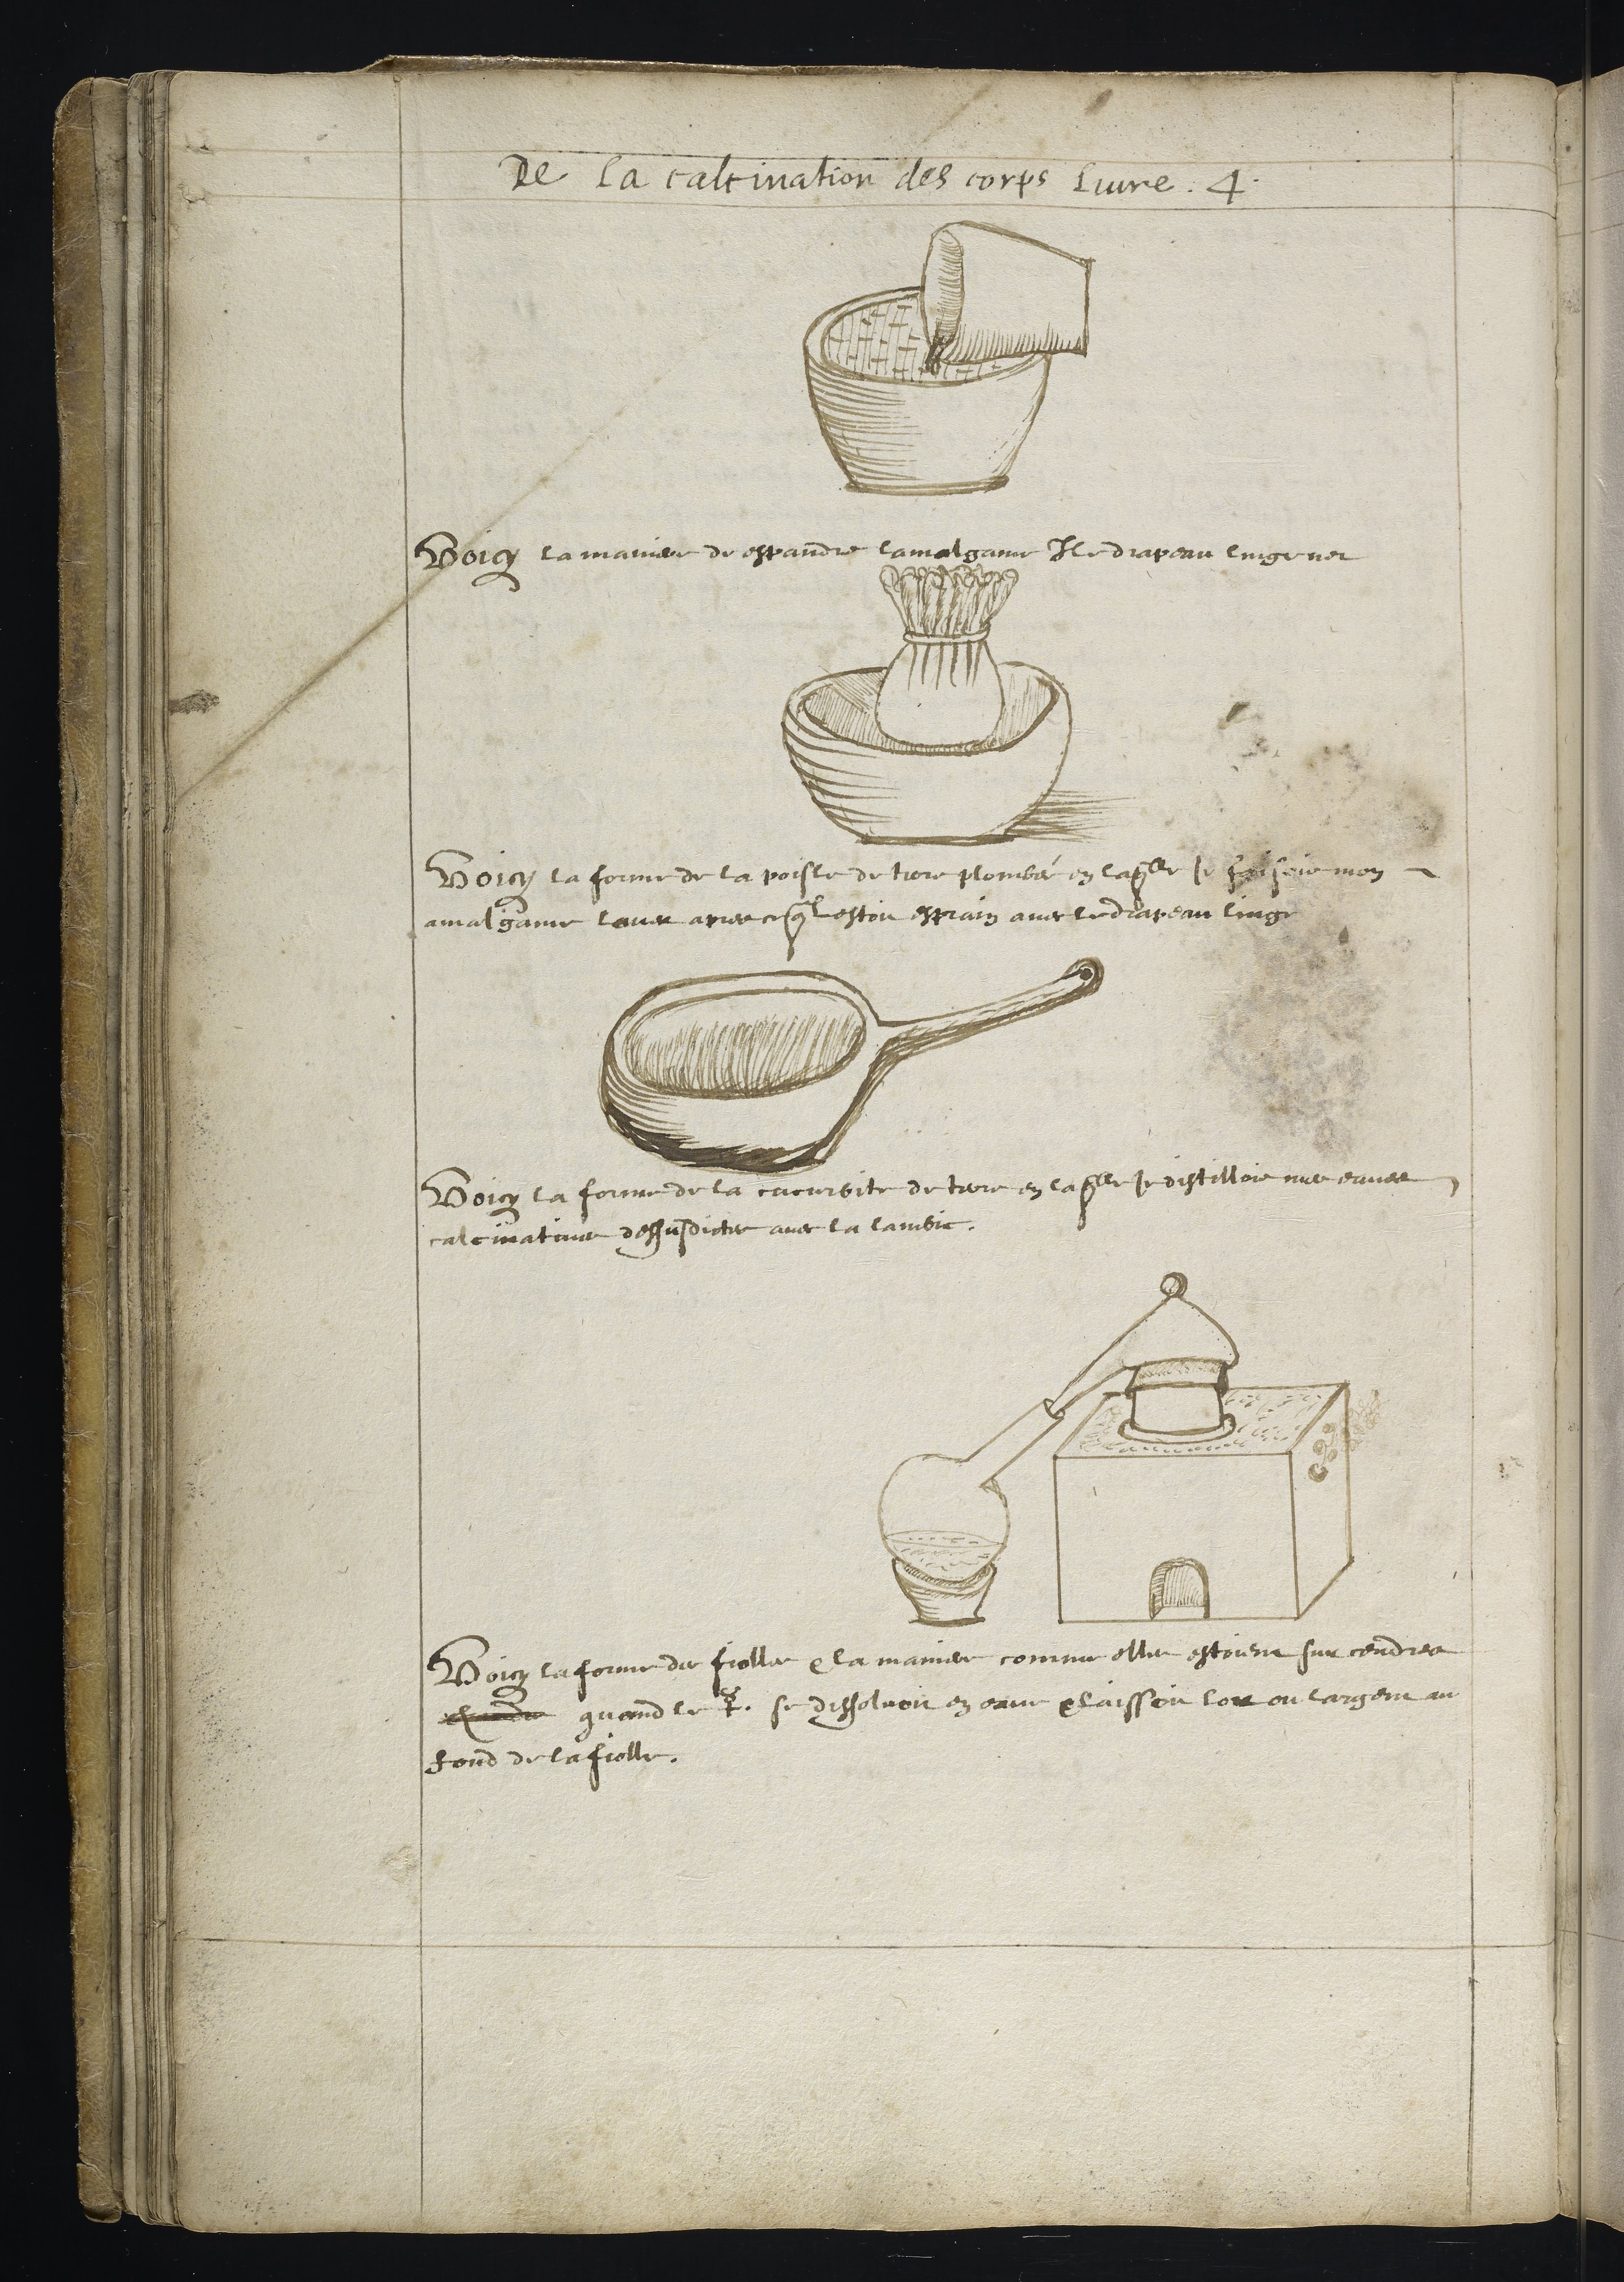 De la calcination des corps Liure . 4 .
Voicy la maniere de espandre lamalgame le drapeau linge net
Voicy la forme de la poisle de terre plombée en laqlle Je faisois mon
amalgame lauer apres estoit esprain auec le drapeau linge
Voicy la forme de la cucurbite de terre en laqlle Je distillois mes eaues
calcinatiues dessusdictes auec la lambic.
Voicy la forme des fiolles & la maniere comme elles estoient sur cendres
quand le ☿. se dissoluoit en eaue & laissoit lor ou largent au
fond de la fiolle.